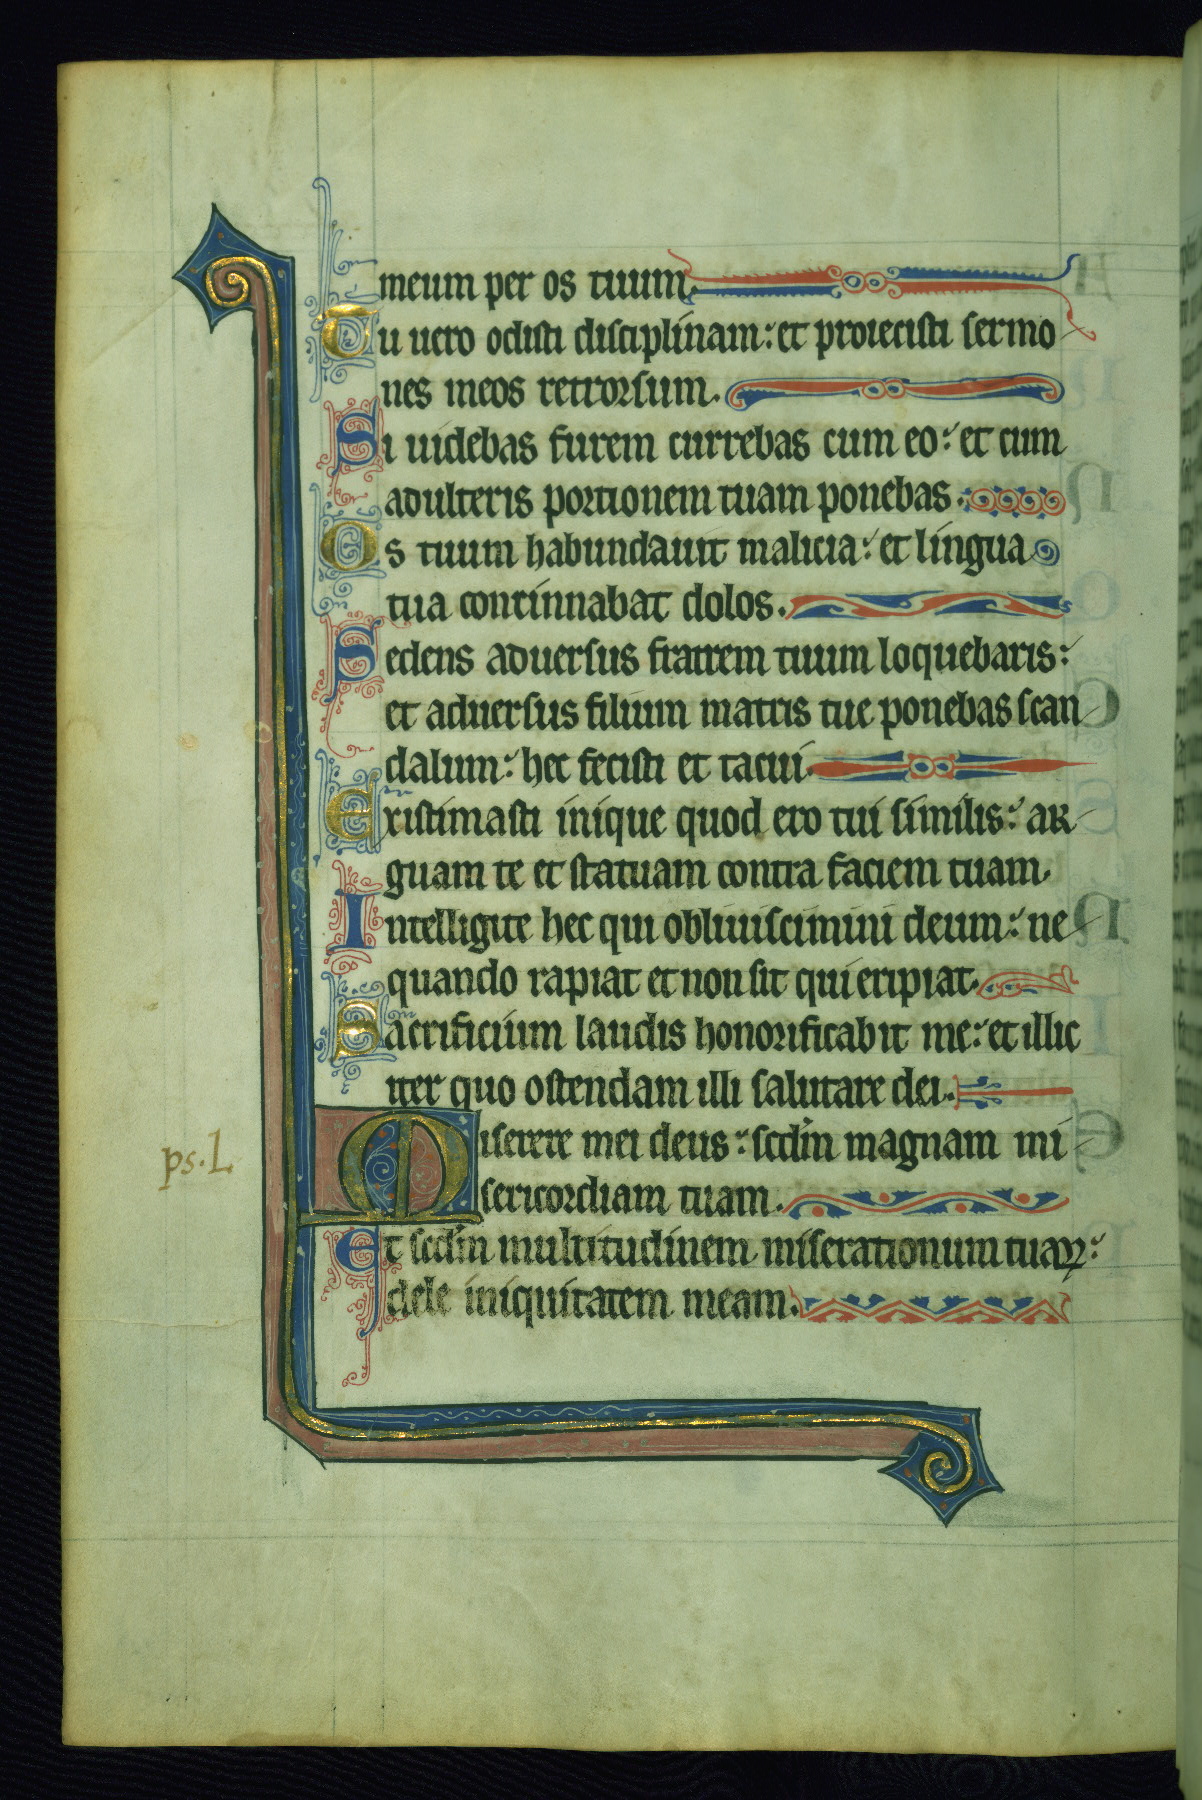 meum per os tuum.
Tu uero odisti disciplinam: et proiecisti sermo
nes meos retrorsum.
Si uidebas furem currebas cum eo: et cum
adulteris portionem tuam ponebas.
Os tuum habundauit malicia: et lingua
tua continnabat dolos.
Sedens aduersus fratrem tuum loquebaris:
et aduersus filium matris tue ponebas scan
dalum: hec fecisti et tacui.
Existimasti inique quod ero tui similis: ar
guam te et statuam contra faciem tuam.
Intelligite hec qui obliuiscimini deum: ne
quando rapiat et non sit qui eripiat.
Sacrificium laudis honorificabit me: et illic
iter quo ostendam illi salutare dei.
Miserere mei deus: scdm magnam mi
ps. L.
sericordiam tuam.
Et scdm multitudinem miserationum tuaꝝ:
dele iniquitatem meam.